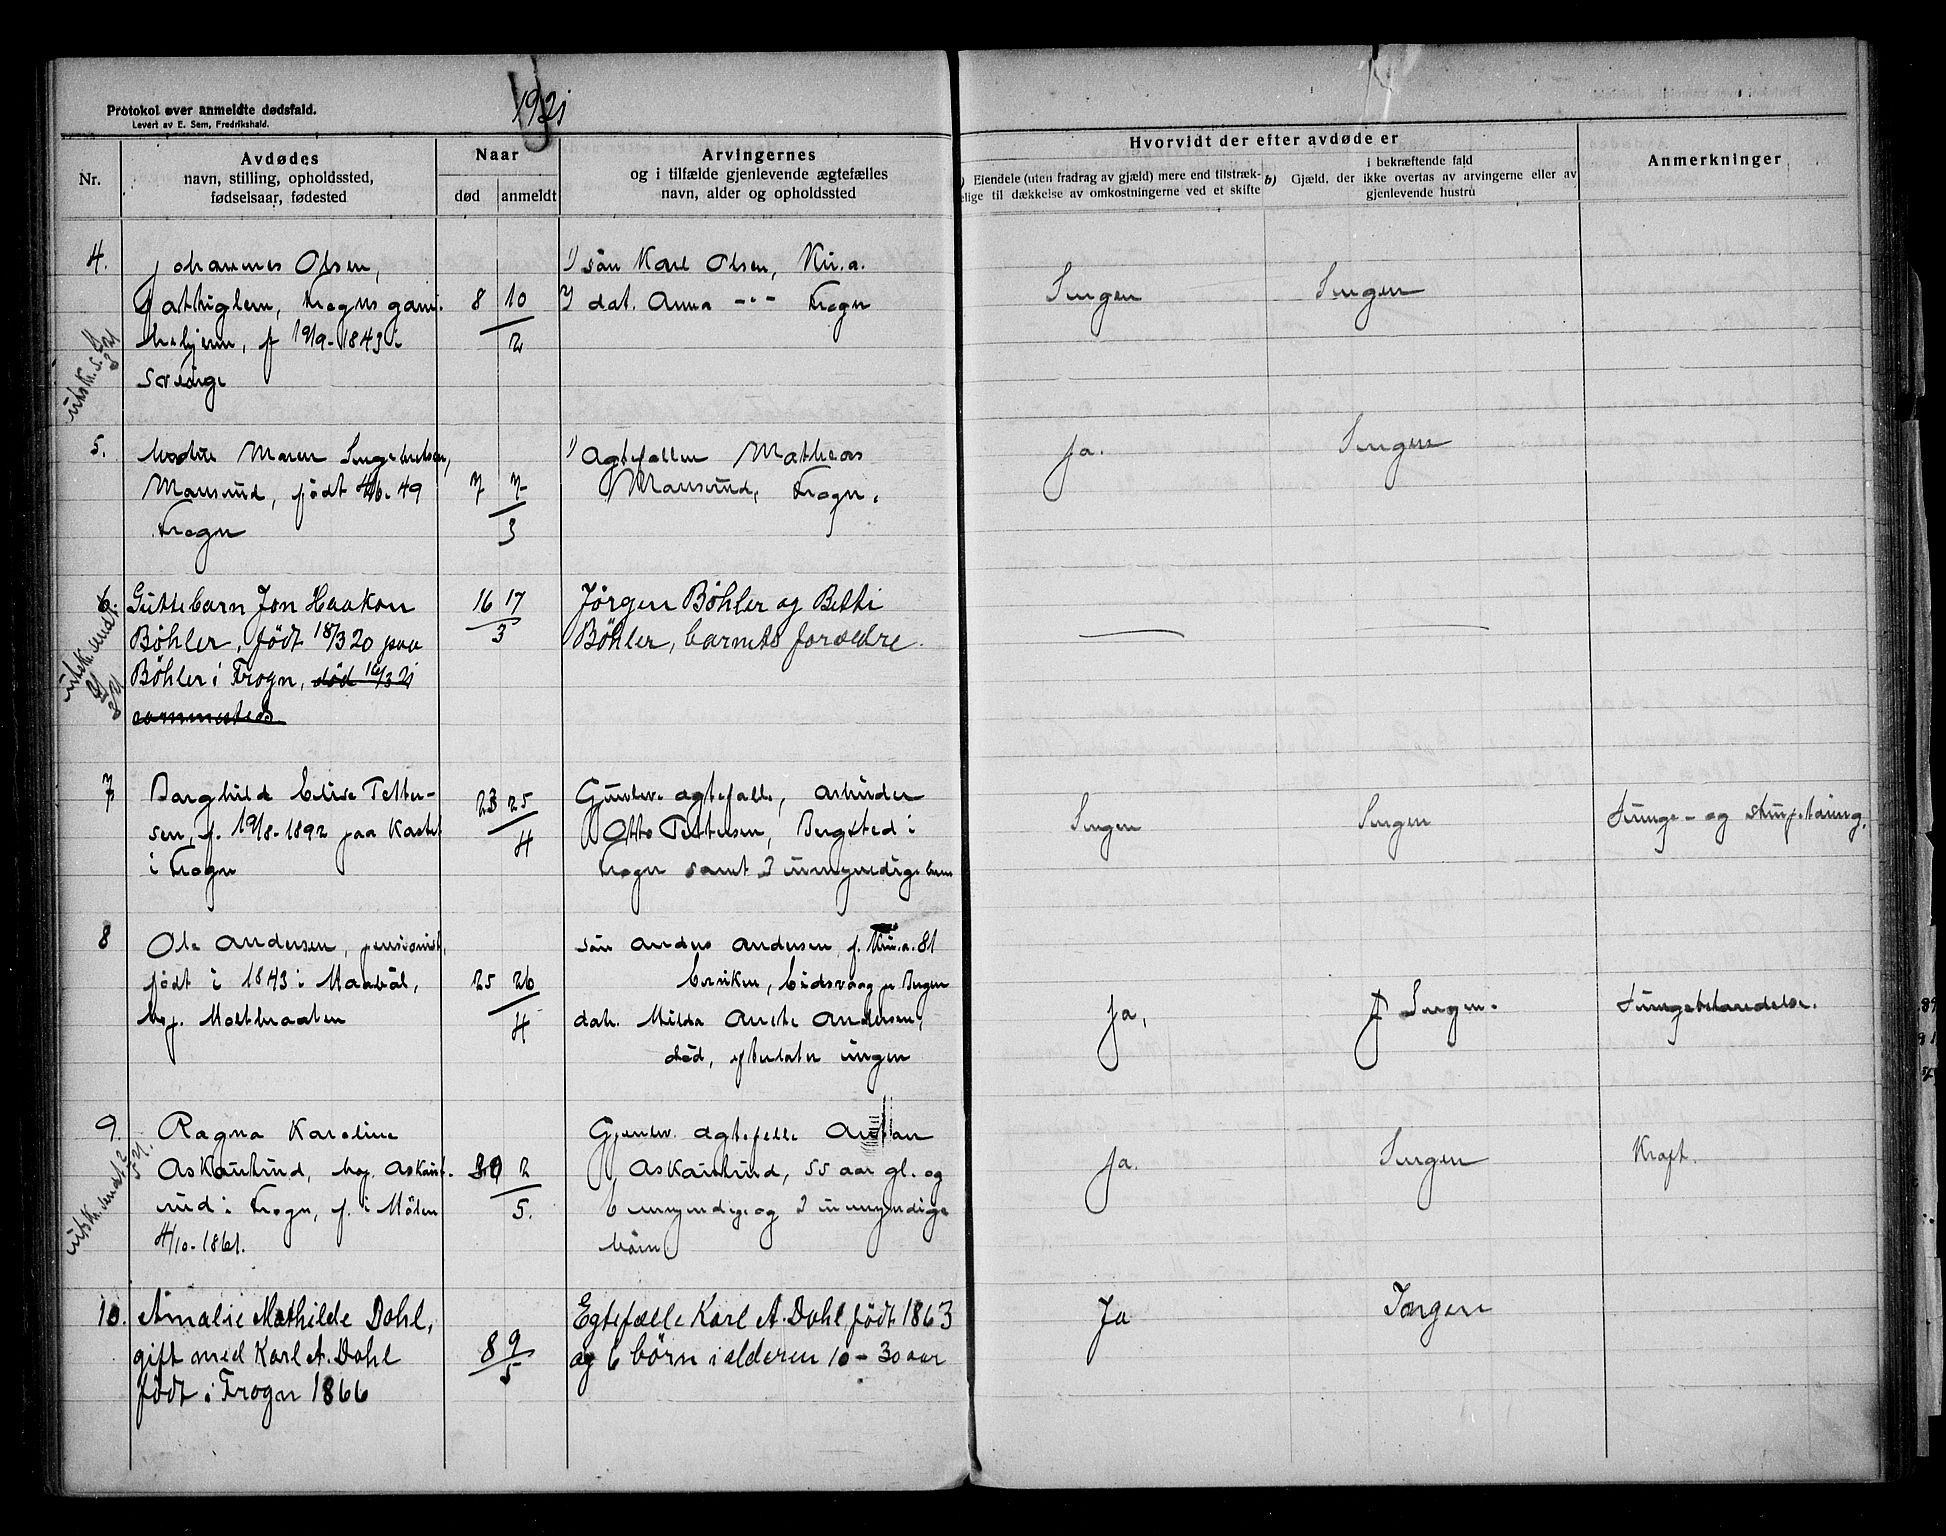 1921
Protokol over anmeldte dødsfald.
Levert av E. Sem, Fredrikshald.
Nr.
Avdødes
navn, stilling, opholdssted,
fødselsaar, fødested
Naar
død anmeldt
Arvingernes
og i tilfælde gjenlevende ægtefælles
navn, alder og opholdssted
Hvorvidt der efter avdøde er
Eiendele (uten fradrag av gjæld) mere end tilstræk-
elige til dækkelse av omkostningerne ved et skifte
b)
i bekræftende fald
Gjæld, der ikke overtas av arvingerne eller av
gjenlevende hustru
Anmerkninger
4.
Johannes Olsen,
fattiglem, Frogns gam-
lehjem, f 19/9-1843 i
Sverige
8 10
2
1) søn Karl Olsen, Kr.a.
2) dat. Anna -"- Frogn
Ingen
Ingen
utskr. s.
5.
Maren Ingebretsen,
født 4/6-49
Frogn
7 7
3
1) Ægtefællen Mathias
Frogn.
Ja.
Ingen
6.
Guttebarn Jon Haakon
Bøhler, født 18/3 20 paa
Bøhler i Frogn, død 16/3 21
sammesteds
16 17
3
Jørgen Bøhler og Betti
Bøhler, barnets forældre.
utskr. sendt
7
Borghild Elise Petter-
sen, f. 19/8-1892 paa
i Frogn
23 25
4
Gjenlev. ægtefælle, arbeider
Otto Pettersen, Bergsted i
Frogn samt 2 umyndige barn
Ingen
Ingen
Lunge- og
8
Ole Andersen, pensionist,
født i 1843 i
boj.
25 26
4
søn Anders Andersen f. 81
Eidsvaag pr Bergen
datr. Hilda Andersen,
død, efterlater ingen
Ja,
Ingen.
Lungebetændelse.
9.
Ragna Karoline
Askautrud, boj. Askaut-
rud i Frogn, f. i Mölen
4/10-1861.
30 2
5.
Gjenlev. ægtefelle Anton
Askautrud, 55 aar gl. og
6 myndige og 2 umyndige
børn.
Ja.
Ingen
Kræft.
utskr. sendt 2
5 21.
10.
Amalie Mathilde Dahl,
gift med Karl A. Dahl
født i Frogn 1866
8 9
5
Egtefælle Karl A. Dahl født 1863
og 6 børn i alderen 10-30 aar
Ja
Ingen